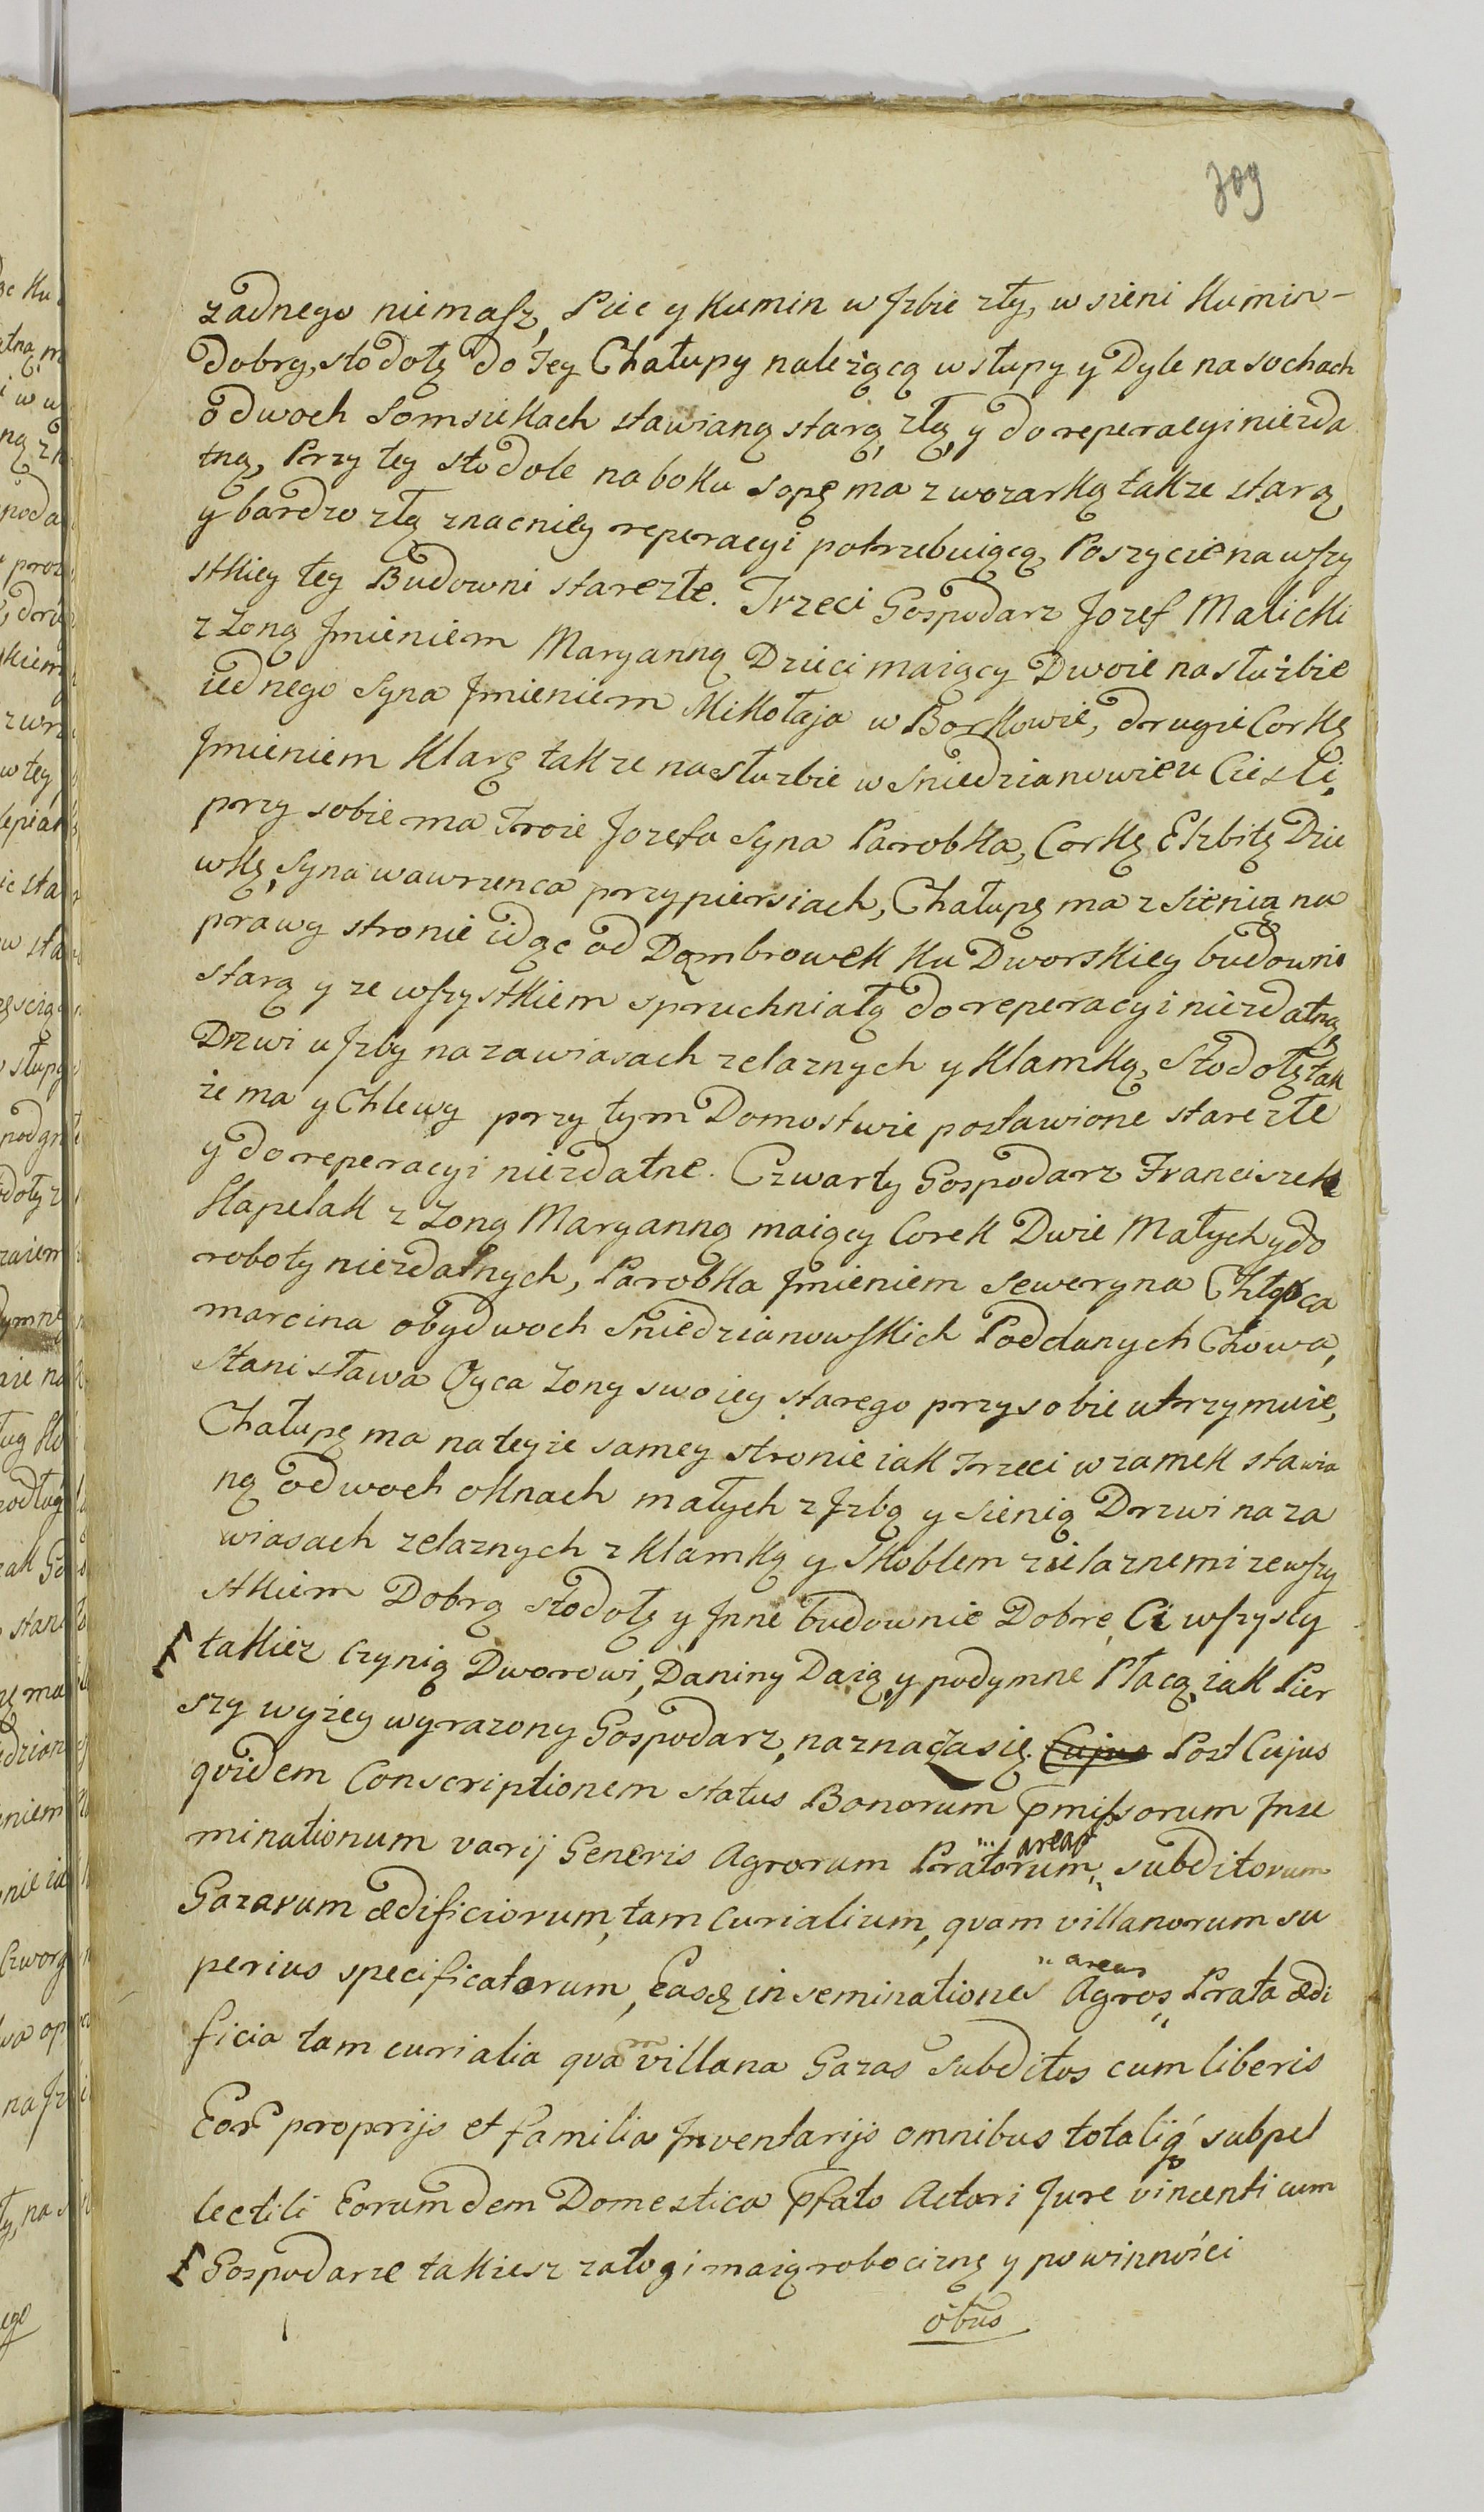 309
zadnego niemasz, Piec y Kumin w Jzbie zły, w sieni Kumin-
dobry, stodołę do Tey Chałupy należącą w słupy y Dyle na sochach
o dwoch Somsiekach stawianą starą, złą, y do reperacyi niezda
tną, Przy tey stodole na boku sopę ma z wozarką takze starą
y bardzo złą znaczniey reperacyi potrzebuiącą, Poszycie na wszy
stkiey tey Budowni stare złe. Trzeci Gospodarz Jozef Malicki
z Zoną Jmieniem Maryanną Dzieci maiący Dwoie na służbie
iednego Syna Jmieniem Mikołaja w Borkowie, drugie Corkę
Jmieniem Klarę takze na służbie w Sniedzianowie u Cieśli,
przy sobie ma Troie Jozefa Syna Parobka, Corkę Elzbitę Dzie
wkę, Syna wawrzenca przy piersiach, Chałupę ma z Sienią na
prawy stronie idąc od Dąmbrowek ku Dworskiey budowni
starą y ze wszystkiem spruchniałą do reperacyi niezdatną
Drzwi u Jzby na zawiasach zelaznych y Klamką, Stodołę tak
że ma y Chlewy przy tym Domostwie postawione stare złe
y do reperacyi niezdatne. Czwarty Gospodarz Franciszek
Kapelak z Zoną Maryanną maiący Corek Dwie Małych y do
roboty niezdatnych, Parobka Jmieniem Seweryna Chłopca
marcina obydwoch Sniedzianowskich Poddanych Chowa,
Stanisława Oyca Zony swoiey starego przy sobie utrzymuie,
Chałupę ma na teyże samey stronie iak Trzeci w zamek stawia
ną o dwoch oknach małych z Jzbą y Sienią Drzwi na za
wiasach zelaznych z Klamką y Skoblem zielaznemi ze wszy
stkiem Dobrą stodołę y Jnne budownie Dobre, Ci wszyscy
takiez Czynią Dworowi, Daniny Daią, y podymne Płacą, iak Pier
szy wyżey wyrazony Gospodarz, naznacza się. Cujus Post Cujus
qvidem Conscriptionem status Bonorum pmissorum Jnse
minationum varij Generis Agrorum Pratorum, subditorum
Gazarum ædificiorum, tam Curialium, qvam villanorum su
perius specificatorum, Easq inseminationes areas Agros, Prata ædi
ficia tam curialia qvam villana Gazas Subditos cum liberis
Eor proprijs et familia Jnventarijs omnibus totaliq subpel
lectili Eorumdem Domestica pfato Actori Jure vincenti cum
Gospodarze takiesz załogi maią robociznę y powinności
obus